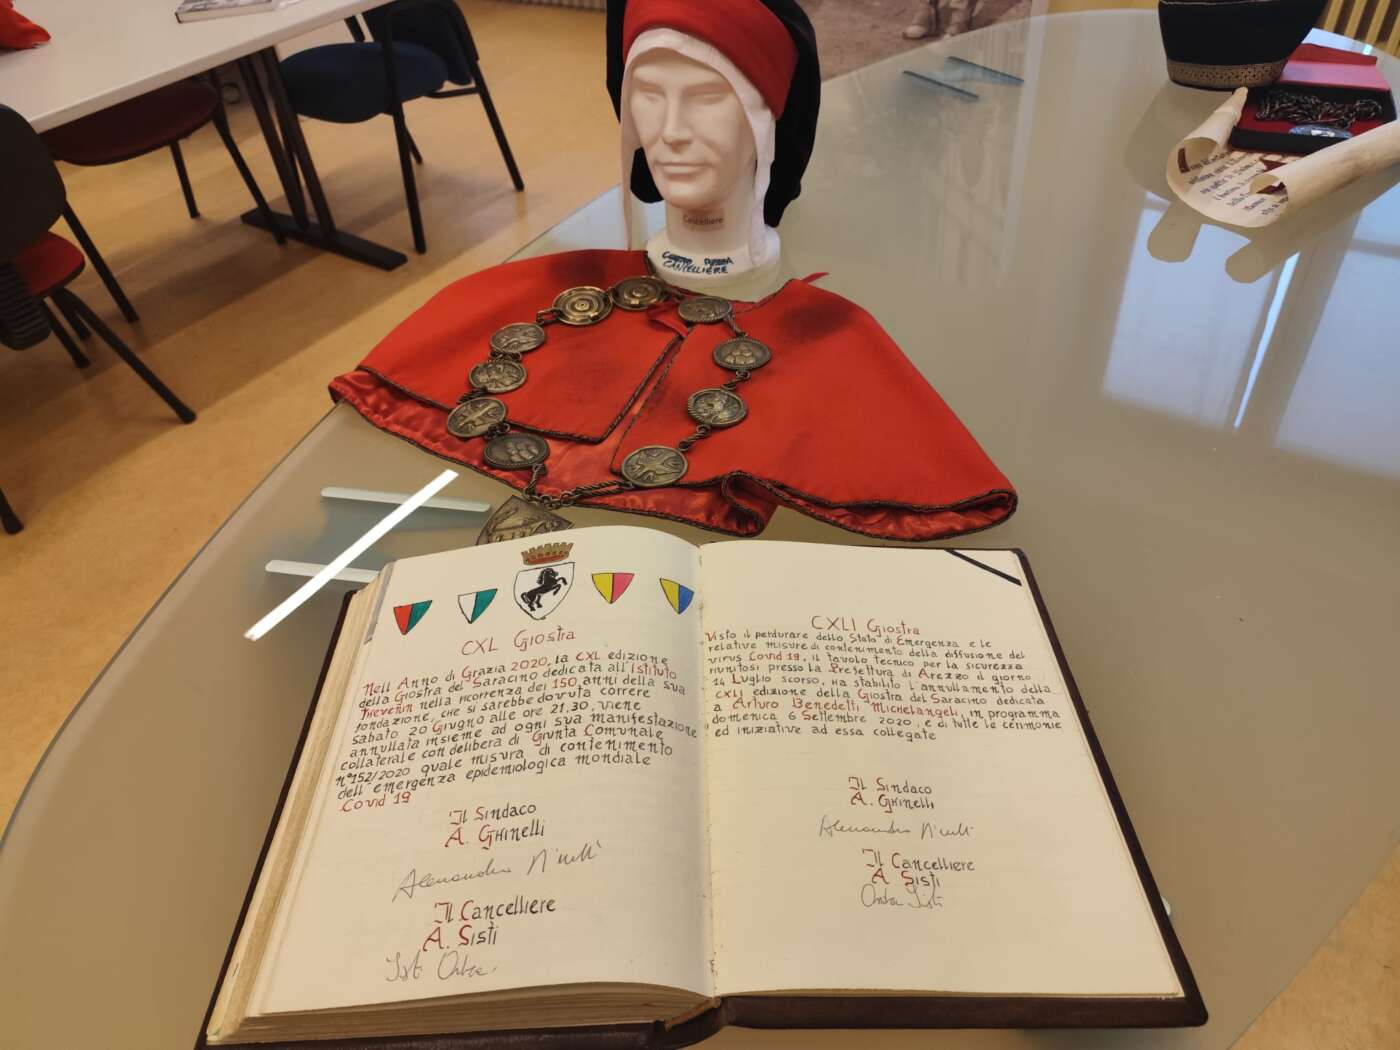 Cancelliere
CANCELLIERE
CXL Giostra
Nell Anno di Grazia 2020, la CXL edizione
della Giostra del Saracino dedicata all'Istituto
Thevenin nella ricorrenza dei 150 anni della sua
fondazione, che si sarebbe dovuta correre
sabato 20 Giugno alle ore 21.30, viene
annullata insieme ad ogni sua manifestazione
collaterale con delibera di Giunta Comunale
n°152/2020 quale misura di contenimento
dell'emergenza epidemiologica mondiale
Covid 19
Il Sindaco
A. Ghinelli
Il Cancelliere
A. Sisti
CXLI Giostra
Visto il perdurare dello Stato di Emergenza e le
relative misure di contenimento della diffusione del
virus Covid 19, il tavolo tecnico per la sicurezza
riunitosi presso la Prefettura di Arezzo il giorno
14 Luglio scorso, ha stabilito l'annullamento della
CXLI edizione della Giostra del Saracino dedicata
a Arturo Benedetti Michelangeli, in programma
domenica 6 Settembre 2020, e di tutte le cerimonie
ed iniziative ad essa collegate
Il Sindaco
A. Ghinelli
Il Cancelliere
A Sisti